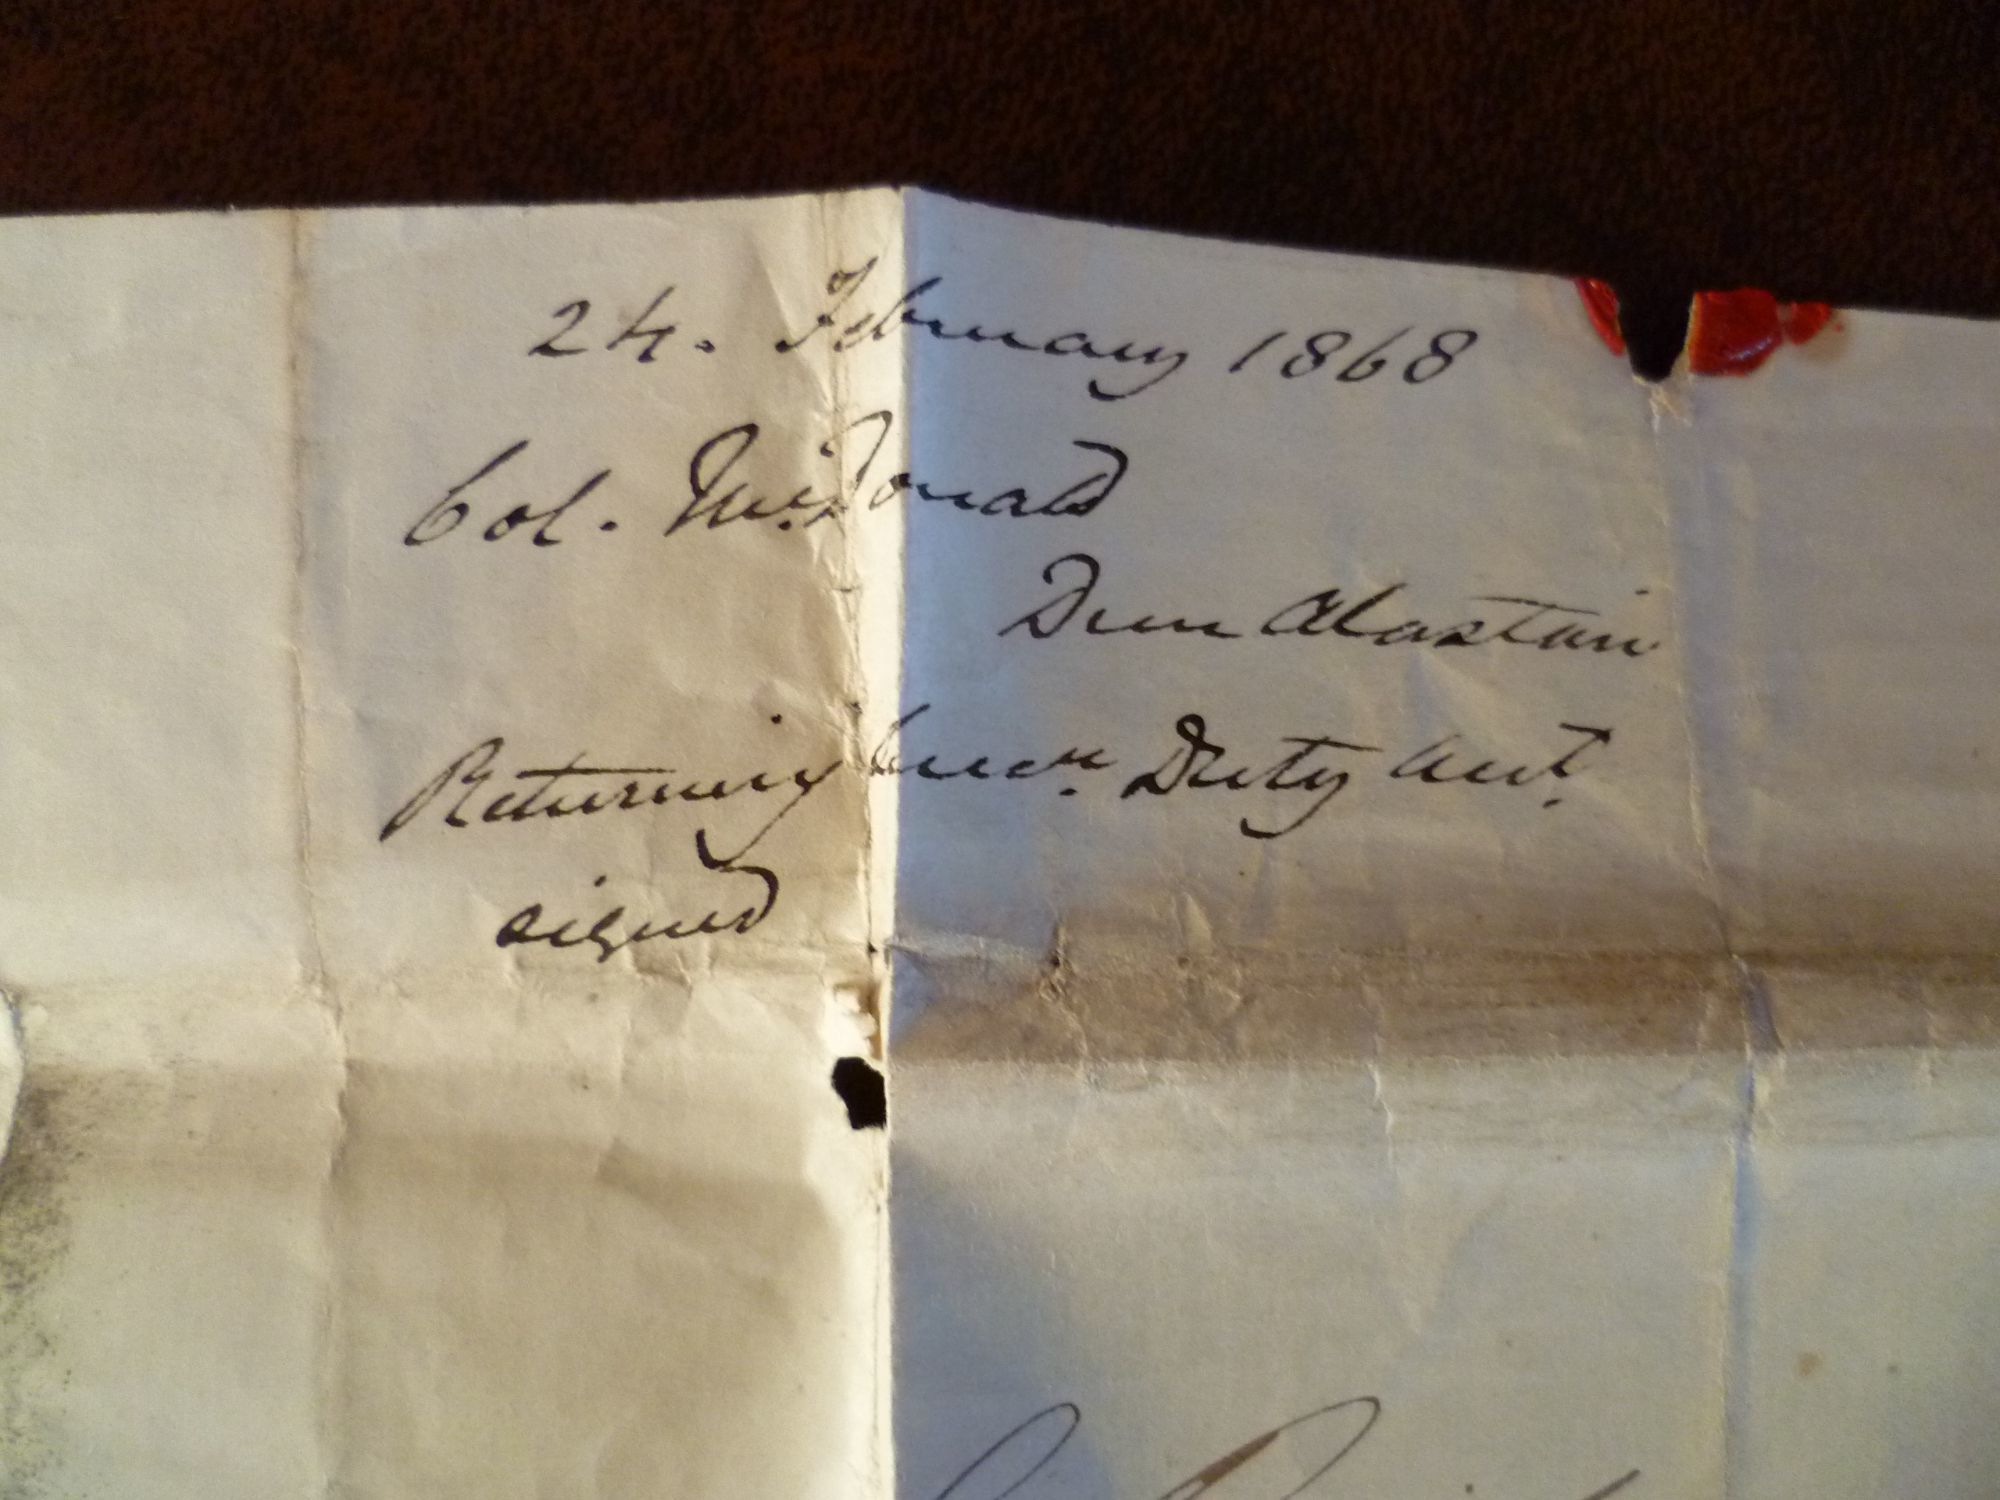 24. February 1868
Col. McDonald
Dun Alastair
Returning Succn. Duty Acct.
signed